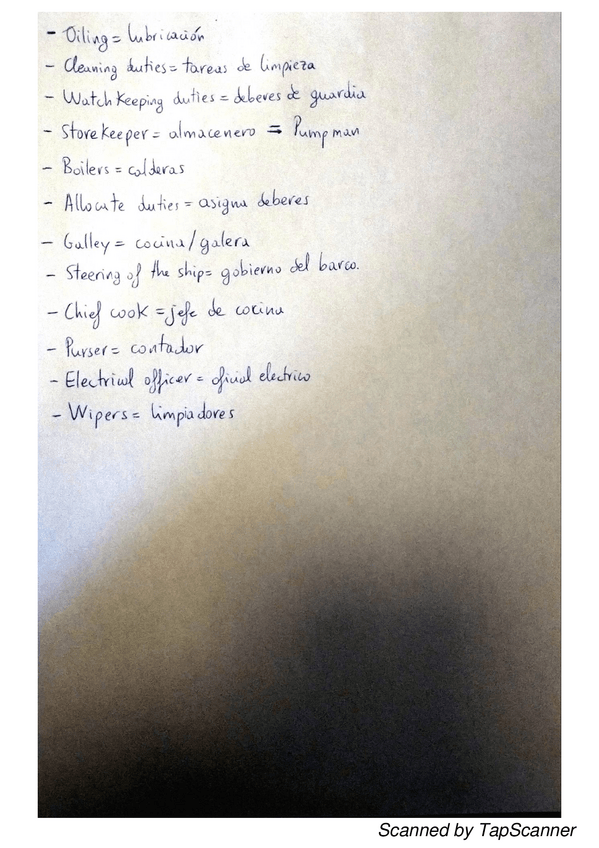 - Oiling = lubricación
- Cleaning duties = tareas de limpieza
- Watch Keeping duties = deberes de guardia
- Store Keeper = almacenero = Pump man
- Boilers = calderas
- Allocate duties = asigna deberes
- Galley = cocina/galera
- Steering of the ship = gobierno del barco.
- Chief cook = jefe de cocina
- Purser = contador
- Electrical officer = oficial electrico
- Wipers = limpiadores
Scanned by TapScanner